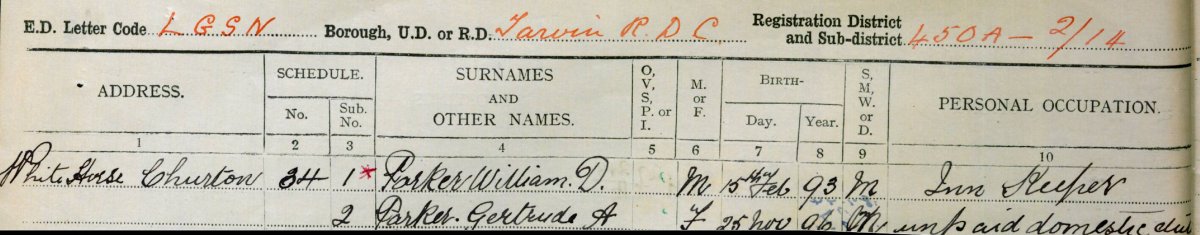 E.D. Letter Code L G S N Borough, U.D. or R.D. Tarvin R. D C. Registration District and Sub-district 450A – 2/14
ADDRESS. SCHEDULE. No. Sub. No. SURNAMES AND OTHER NAMES. O, V, S, P. or I. M. or F. BIRTH- Day. Year. S, M, W. or D. PERSONAL OCCUPATION.
1 2 3 4 5 6 7 8 9 10
White Horse Churton 34 1* Parker William. D. M 15th Feb 93 M Inn Keeper
2 Parker. Gertrude A F 25 Nov 96 M unpaid domestic